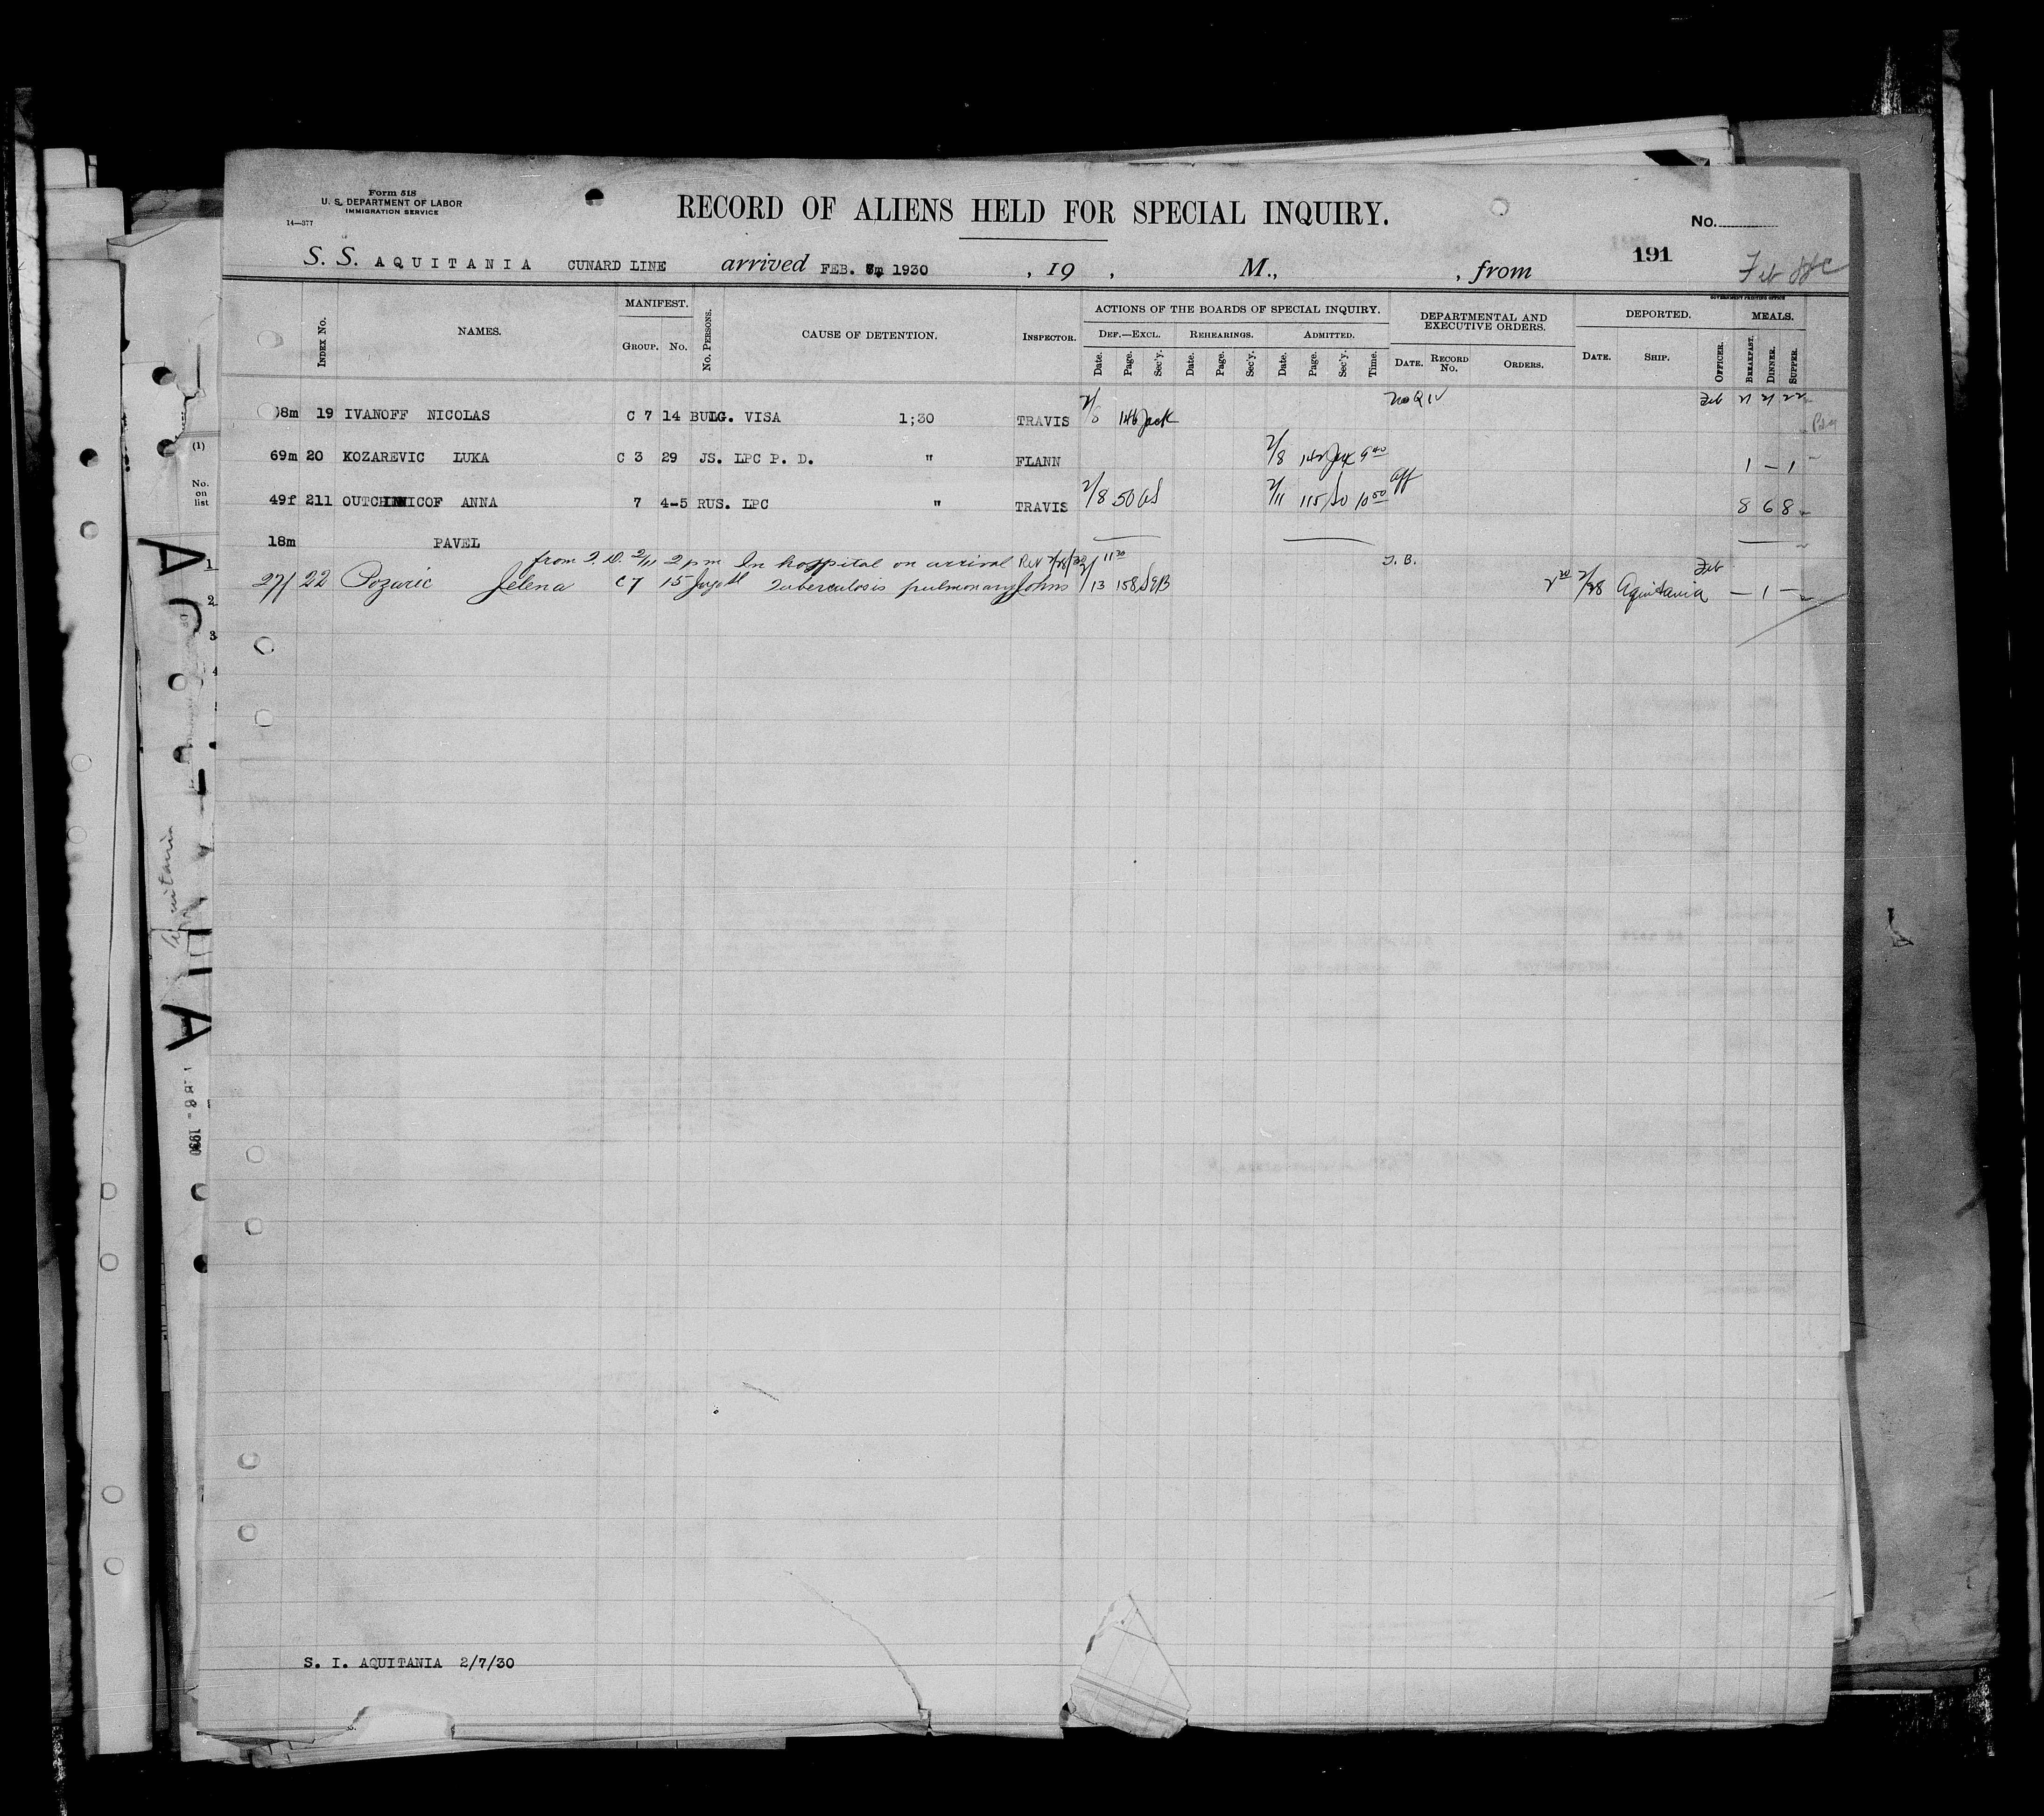 Form 518
U. S. DEPARTMENT OF LABOR
IMMIGRATION SERVICE
14—377
RECORD OF ALIENS HELD FOR SPECIAL INQUIRY.
No.
191
S. S. AQUITANIA CUNARD LINE arrived FEB. 1930 , 19 , M., , from
Feb
GOVERNMENT PRINTING OFFICE
INDEX No. NAMES. MANIFEST. GROUP. No. No. PERSONS. CAUSE OF DETENTION. INSPECTOR.
ACTIONS OF THE BOARDS OF SPECIAL INQUIRY.
DEF.—EXCL. REHEARINGS. ADMITTED.
Date. Page. Sec'y. Date. Page. Sec'y. Date. Page. Sec'y. Time.
DEPARTMENTAL AND EXECUTIVE ORDERS.
DATE. RECORD No. ORDERS.
DEPORTED.
DATE. SHIP. OFFICER.
MEALS.
BREAKFAST. DINNER. SUPPER.
8m 19 IVANOFF NICOLAS C 7 14 BULG. VISA 1;30 TRAVIS 2/8 146 Jack No Q IV Feb 21 21 22
69m 20 KOZAREVIC LUKA C 3 29 JS. LPC P. D. " FLANN 2/8 142 9 40 1 — 1
49f 211 OUTCHINNICOF ANNA 7 4-5 RUS. LPC " TRAVIS 2/8 50 2/11 115 10 50 aff 8 6 8
18m PAVEL
from 2/11 2 pm In hospital on arrival 11 30 T. B. Feb
27f 22 Pozaric Jelena C 7 15 Tuberculosis pulmonary Johns 2/13 158 2/28 Aquitania — 1 —
(1)
No.
on
list
1
2
3
4
Aquitania
1930
S. I. AQUITANIA 2/7/30